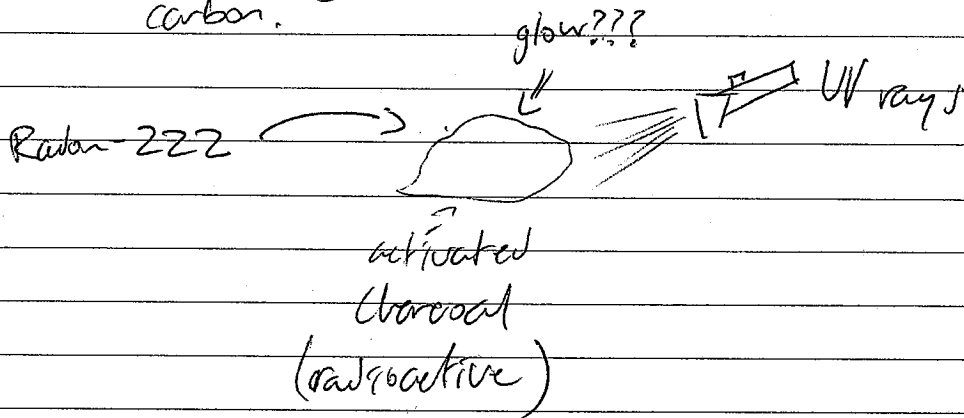 carbon.
glow???
UV rays
Radon-222
activated
Charcoal
(radioactive)